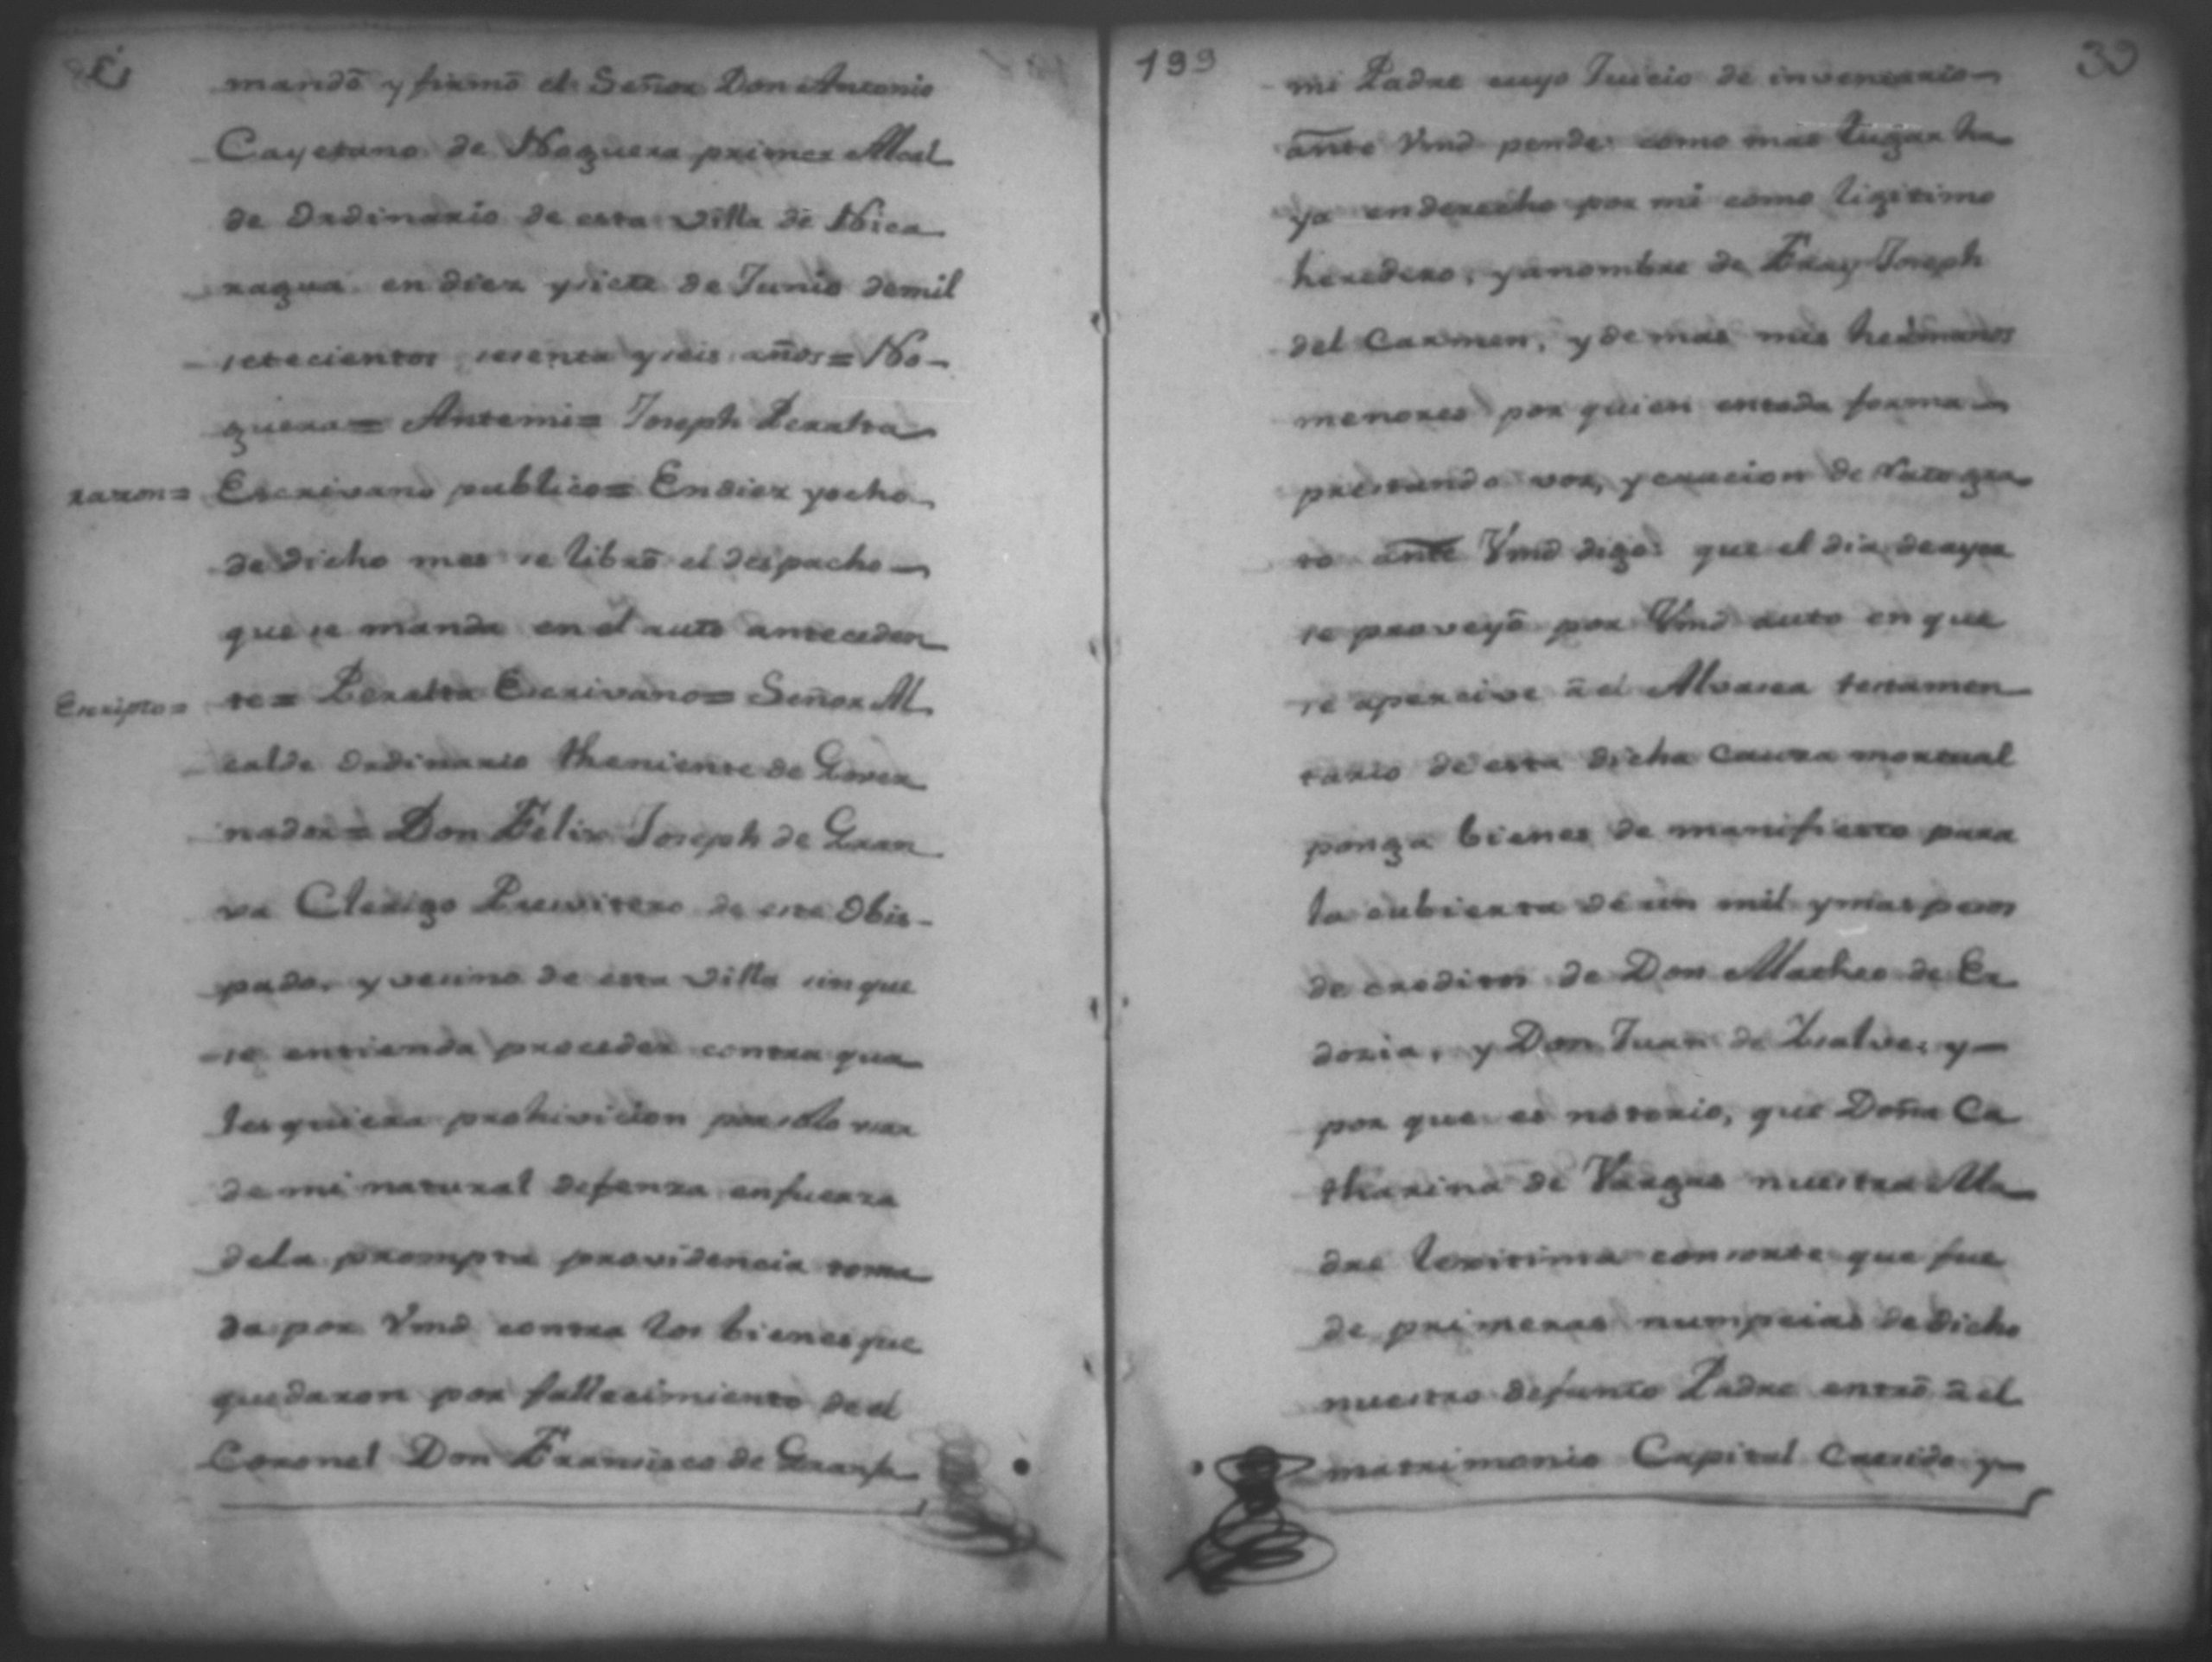 mandó y firmó el Señor Don Antonio
Cayetano de Noguera primer Alcal
de Ordinario de esta villa de Nica
ragua en diez y siete de Junio demil
setecientos sesenta y seis años= No-
guera= Antemi= Joseph Peralta
razon= Escrivano publico= Endiez yocho
de dicho mes se libró el despacho
que se manda en el auto anteceden
Escripto= te= Peralta Escrivano= Señor Al
calde Ordinario theniente de Gover
nador= Don Felix Joseph de Gran
va Clerigo Presvitero de este Obis-
pado, y vesino de esta villa sin que
se entienda proceder contra qua
lesquiera prohivicion por solo usar
de mi natural defenza enfuerza
dela prompta providencia toma
da por Vmd contra los bienes que
quedaron por fallecimiento de el
Coronel Don Francisco de Granja
199
39
mi Padre cuyo Juicio de inventario
ante Vmd pende: como mas lugar ha
ya enderecho por mi como ligitimo
heredero, y anombre de Fray Joseph
del Carmen, y demas mis hermanos
menores por quien entoda forma
prestando voz, y caucion de Rato gra
to ante Vmd digo: que el dia deayer
se proveyó por Vmd auto en que
se apercive á el Alvasea testamen
tario de esta dicha Causa mortual
ponga bienes de manifiesto para
la cubierta de un mil ymas pesos
de creditos de Don Matheo de
doria, y Don Juan de y
por que es notorio, que Doña Ca
tharina de Vargas nuestra Ma
dre lexitima consorte que fue
de primeras numpcias de dicho
nuestro defunto Padre entró á el
matrimonio Capital Cresido y